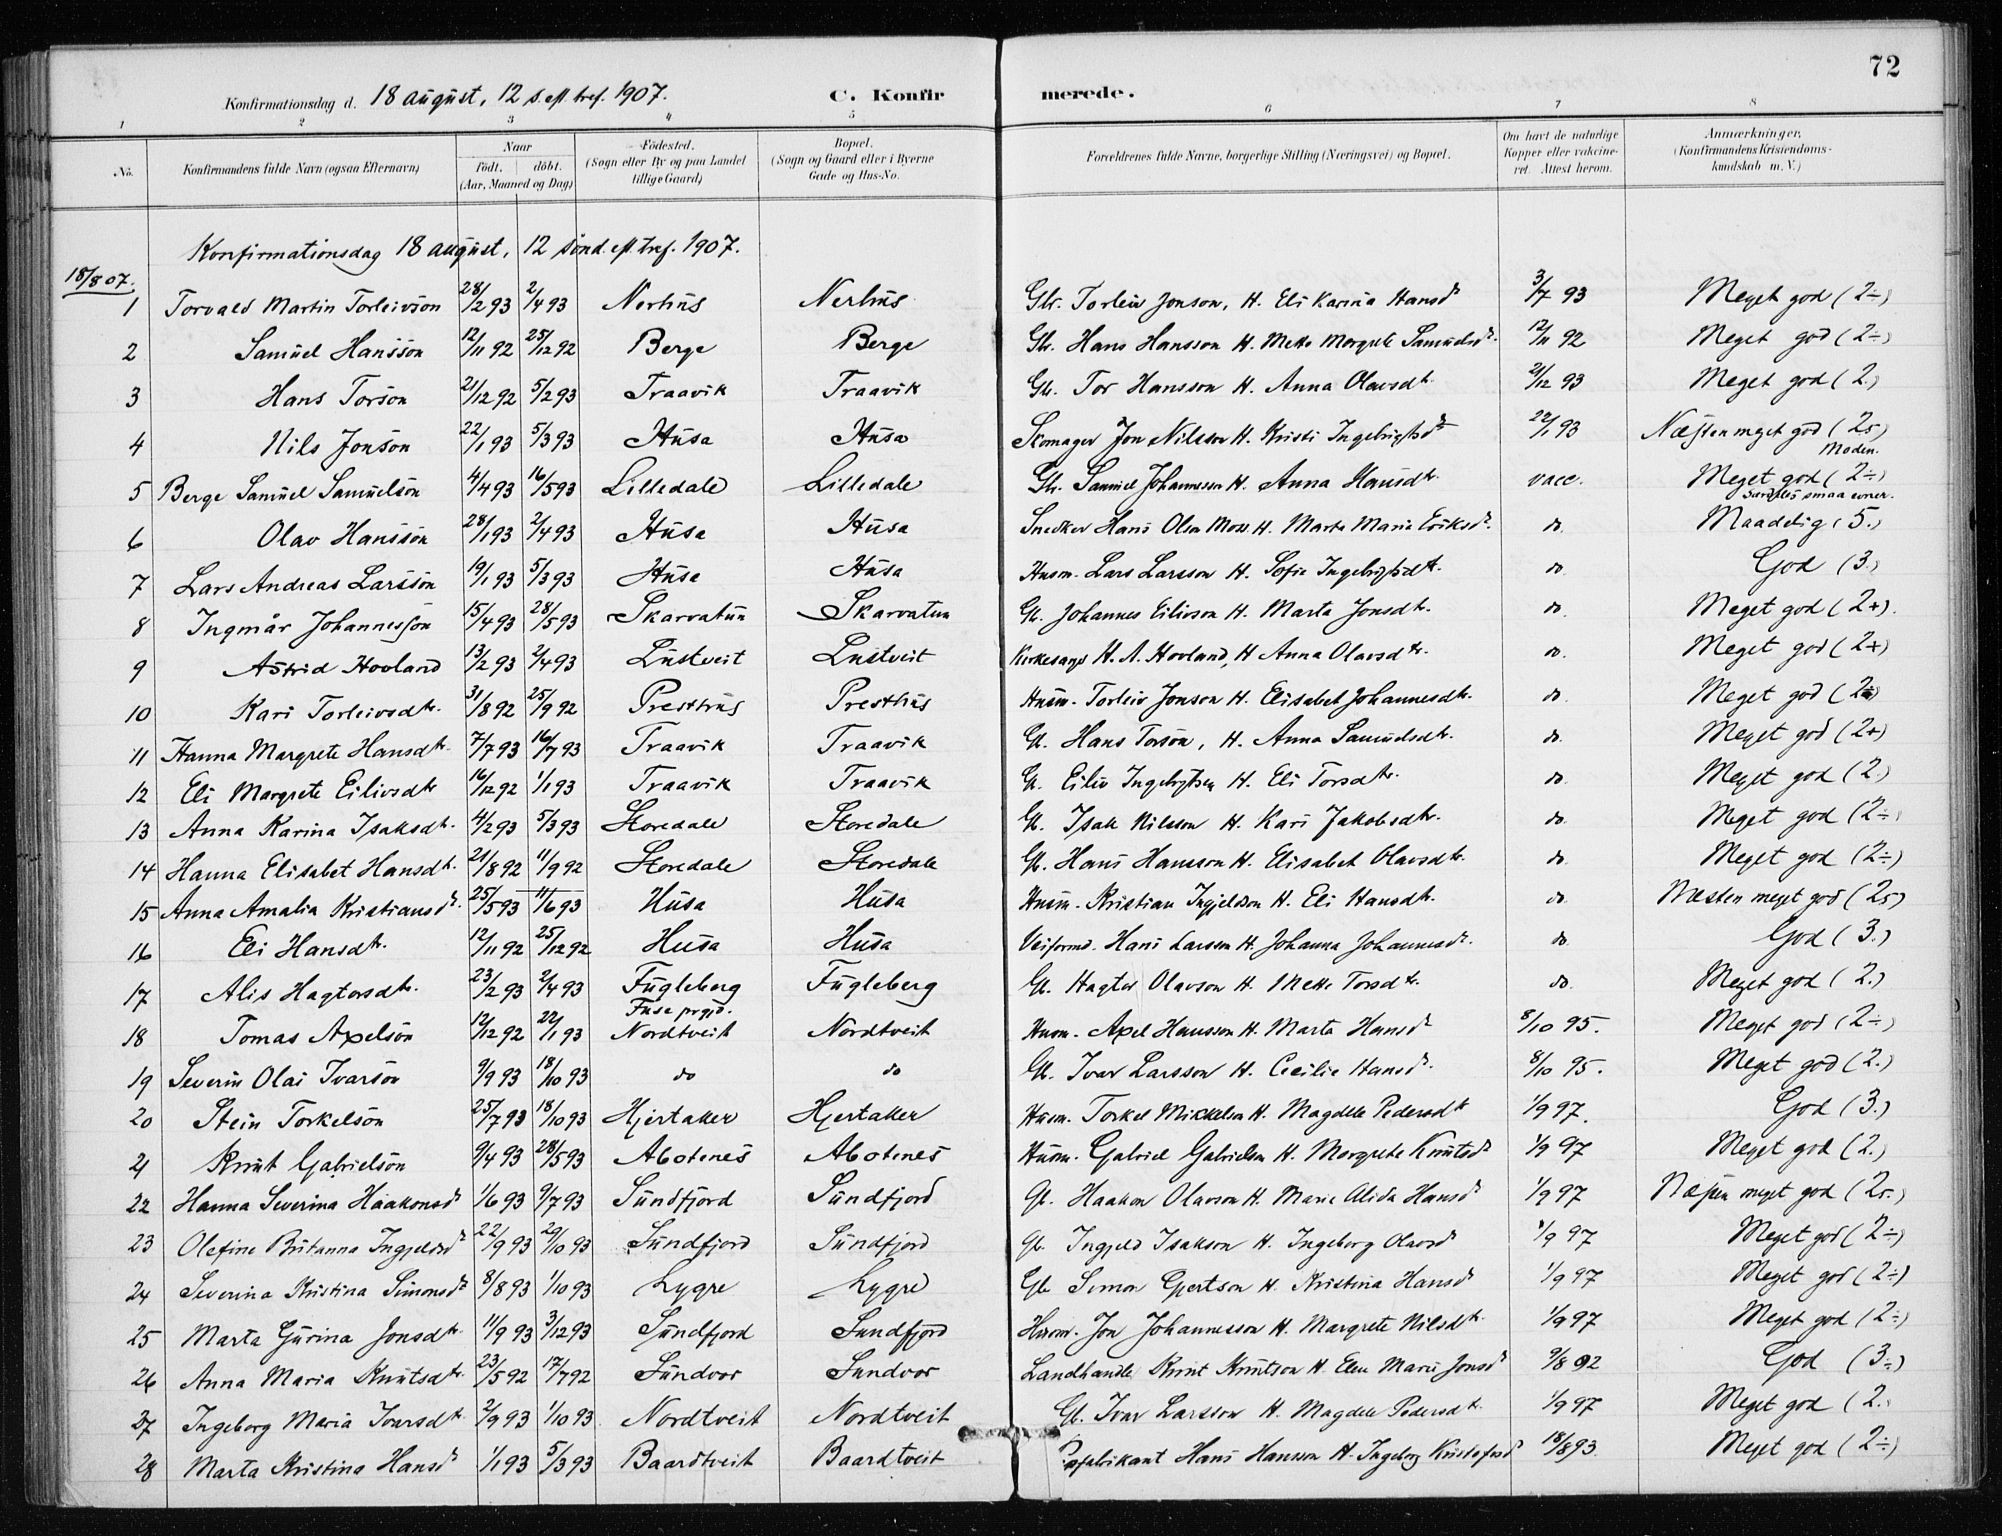 72
Konfirmationsdag d. 18 august, 12 s. eft. tref. 1907. C. Konfir merede.
1 2 3 4 5 6 7 8
No. Konfirmandens fulde Navn (ogsaa Efternavn) Naar födt. döbt. (Aar, Maaned og Dag) Födested. (Sogn eller By og paa Landet tillige Gaard) Bopæl. (Sogn og Gaard eller i Byerne Gade og Hus-No. Forældrenes fulde Navne, borgerlige Stilling (Næringsvei) og Bopæl. Om havt de naturlige Kopper eller vakcineret. Attest herom. Anmærkninger, (Konfirmandens Kristendomskundskab m. V.)
Konfirmationsdag 18 august, 12 sönd. eft. tref. 1907.
18/8 07.
1 Torvald Martin Torleivson 28/2 93 2/4 93 Nerhus Nerhus Gbr. Torleiv Jonson, H. Eli Karina Hansdr 3/7 93 Meget god (2÷)
2 Samuel Hansson 12/11 92 25/12 92 Berge Berge Gbr. Hans Hansson H. Mette Margrete Samuelsdr. 12/11 92 Meget god (2÷)
3 Hans Torson 21/12 92 5/2 93 Traavik Traavik Gbr. Tor Hansson H. Anna Olavsdtr. 21/12 93 Meget god (2.)
4 Nils Jonson 22/1 93 5/3 93 Husa Husa Skomager Jon Nilsson H. Kristi Ingebrigtsdr 22/1 93 Næsten meget god (25)
Moden.
5 Berge Samuel Samuelson 4/4 93 16/5 93 Lilledale Lilledale Gbr. Samuel Johannesson H. Anna Hansdtr. vacc. Meget god (2÷)
smaa evner.
6 Olav Hansson 28/1 93 2/4 93 Husa Husa Snedker Hans Olsen Moss H. Marta Maria Eriksdr. do. Maadelig (5.)
7 Lars Andreas Larsson 19/1 93 5/3 93 Husa Husa Husm. Lars Larsson H. Sofie Ingebrigtsdtr. do God (3.)
8 Ingmår Johannesson 15/4 93 28/5 93 Skarvatun Skarvatun Gb. Johannes Eilivson H. Marta Jonsdtr. do. Meget god (2+).
9 Astrid Hovland 13/2 93 2/4 93 Lustveit Lustveit Kirkesanger H. A. Hovland, H Anna Olavsdtr. do. Meget god (2+)
10 Kari Torleivsdtr. 31/8 92 25/9 92 Presthus Presthus Husm. Torleiv Jonson H. Elisabet Johannesdtr. do. Meget god (2)
11 Hanna Margrete Hansdtr. 7/7 93 16/7 93 Traavik Traavik Gb. Hans Torson, H. Anna Samuelsdtr. do. Meget god (2+)
12 Eli Margrete Eilivsdtr 16/12 92 1/1 93 Traavik Traavik Gb. Eiliv Ingebrigtsen H. Eli Torsdtr. do Meget god (2.)
13 Anna Karina Isaksdtr. 4/2 93 5/3 93 Storedale Storedale Gb. Isak Nilsson H. Kari Jakobsdtr. do. Meget god (2÷)
14 Hanna Elisabet Hansdtr. 21/8 92 11/9 92 Storedale Storedale Gb. Hans Hansson H. Elisabet Olavsdtr. do. Meget god (2÷)
15 Anna Amalia Kristiansdr. 25/5 93 11/6 93 Husa Husa Husm. Kristian Ingjeldson H. Eli Hansdtr. do. Næsten meget god (25)
16 Eli Hansdtr. 12/11 92 25/12 92 Husa Husa Veiformd. Hans Larssen H. Johanna Johannesdr. do. God (3.)
17 Alis Hagtorsdtr. 23/2 93 2/4 93 Fugleberg Fugleberg Gb. Hagtor Olavson H. Mette Torsdtr. do. Meget god (2.)
Fuse prgjd.
18 Tomas Axelson 12/12 92 22/1 93 Nordtveit Nordtveit Husm. Axel Hansson H. Marta Hansdr 8/10 95. Meget god (2÷)
19 Severin Olai Ivarson 9/9 93 18/10 93 do do Gb. Ivar Larsson H. Cecilie Hansdr. 8/10 95. Meget god (2.)
20 Stein Torkelson 25/7 93 18/10 93 Hjertaker Hjertaker Husm. Torkel Mikkelson H. Magdele Pedersdtr 1/9 97. God (3.)
21 Knut Gabrielson 9/4 93 28/5 93 Abotenes Abotenes Husm. Gabriel Gabrielsen H. Margrete Knutsdr 1/9 97 Meget god (2.)
22 Hanna Severina Haakonsdr 1/6 93 9/7 93 Sundfjord Sundfjord Gb. Haakon Olavson H. Marie Alida Hansdr 1/9 97 Næsten meget god (25.)
23 Olefine Britanna Ingjeldsdr 22/9 93 29/10 93 Sundfjord Sundfjord Gb. Ingjeld Isakson H. Ingeborg Olavsdr 1/9 97 Meget god (2÷)
24 Severina Kristina Simonsdr 8/8 93 1/10 93 Lygre Lygre Gb. Simon Gjertson H. Kristina Hansdr 1/9 97 Meget god (2÷)
25 Marta Gurina Jonsdtr. 11/9 93 3/12 93 Sundfjord Sundfjord Husm. Jon Johannesson H. Margrete Nilsdtr. 1/9 97 Meget god (2÷)
26 Anna Maria Knutsdtr. 23/5 92 17/7 92 Sundvor Sundvor Landhandler Knut Knutson H. Elen Marie Jonsdr 9/8 92 God (3÷)
27 Ingeborg Maria Ivarsdtr. 2/9 93 1/10 93 Nordtveit Nordtveit Gb. Ivar Larsson H. Magdele Pedersdtr. 1/9 97 Meget god (2.)
28 Marta Kristina Hansdr 1/1 93 5/3 93 Baardtveit Baardtveit Hans Hansson H. Ingeborg Kristofersdr 18/8 93. Meget god (2÷)